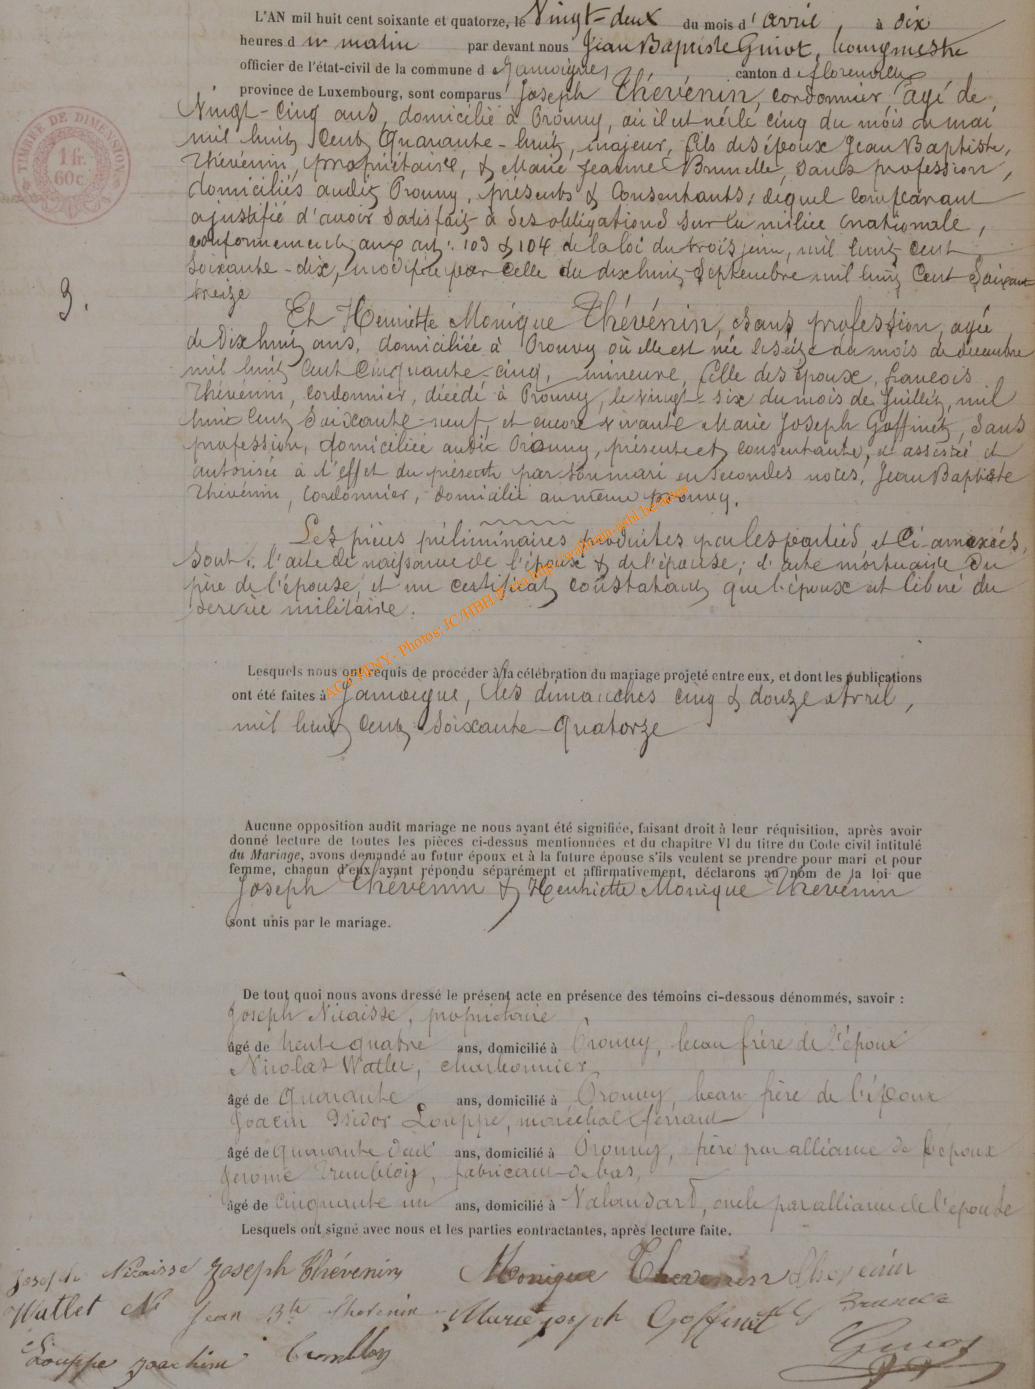 L'AN mil huit cent soixante et quatorze, le Vingt-deux du mois d'avril, à dix
heures du matin par devant nous Jean Baptiste Guiot, bourgmestre
officier de l'état-civil de la commune de Jamoigne, canton de florenville
province de Luxembourg, sont comparus Joseph Thévenin, cordonnier, âgé de
Vingt-Cinq ans, domicilié à Prouvy, où il est né le cinq du mois de mai
mil huit Cent Quarante-huit, majeur, fils des époux Jean Baptiste,
Thévenin, propriétaire, & Marie Jeanne Brunelle, sans profession,
domiciliés audit Prouvy, présents & Consentants; lequel comparant
a justifié d'avoir satisfait à ses obligations sur la milice nationale,
conformement aux art: 103 & 104 de la loi du trois juin, mil huit cent
Soixante-dix, modifiée par celle du dix huit Septembre mil huit Cent Soixante
treize
3.
Et Henriette Monique Thévenin, sans profession, agée
de Dix huit ans, domiciliée à Prouvy où elle est née le seize du mois de décembre
mil huit Cent Cinquante-cinq, mineure, fille des époux, françois
Thévenin, cordonnier, décédé à Prouvy, le vingt-six du mois de Juillet, mil
huit Cent Soixante-neuf, et encore vivante Marie Joseph Goffinet, Sans
profession, domiciliée audit Prouvy, présente et consentante, et assisté et
autorisée à l'effet du présent par son mari en secondes noces, Jean Baptiste
Thévenin, Cordonnier, domicilié au même Prouvy.
Les pièces préliminaires produites par les parties, et Ci-annexées,
sont: l'acte de naissance de l'époux & de l'épouse; l'acte mortuaire du
père de l'épouse, et un certificat, constatant que l'époux est libéré du
service militaire.
Lesquels nous ont requis de procéder à la célébration du mariage projeté entre eux, et dont les publications
ont été faites à Jamoigne, les dimanches cinq & douze avril,
mil huit Cent Soixante-Quatorze
Aucune opposition audit mariage ne nous ayant été signifiée, faisant droit à leur réquisition, après avoir
donné lecture de toutes les pièces ci-dessus mentionnées et du chapitre VI du titre du Code civil intitulé
du Mariage, avons demandé au futur époux et à la future épouse s'ils veulent se prendre pour mari et pour
femme, chacun d'eux ayant répondu séparément et affirmativement, déclarons au nom de la loi que
Joseph Thévenin & Henriette Monique Thévenin
sont unis par le mariage.
De tout quoi nous avons dressé le présent acte en présence des témoins ci-dessous dénommés, savoir :
Joseph Nicaisse, propriétaire
âgé de trente quatre ans, domicilié à Prouvy, beau frère de l'époux
Nicolas Watlet, charbonnier,
âgé de Quarante ans, domicilié à Prouvy, beau frère de l'époux
Joacin Isidor Louppe, maréchal ferrant
âgé de quarante deux ans, domicilié à Prouvy, frère par alliance de l'époux
Jerome Tremblois, fabricant de bas,
âgé de Cinquante un ans, domicilié à Valansart, oncle par alliance de l'épouse
Lesquels ont signé avec nous et les parties contractantes, après lecture faite.
Joseph Nicaisse Joseph Thévenin Monique Thevenin Thevenin
Watlet N Jean Bte Thevenin Marie joseph Goffinet
Louppe joachim Guiot
TIMBRE DE DIMENSION
1 fr.
60c.